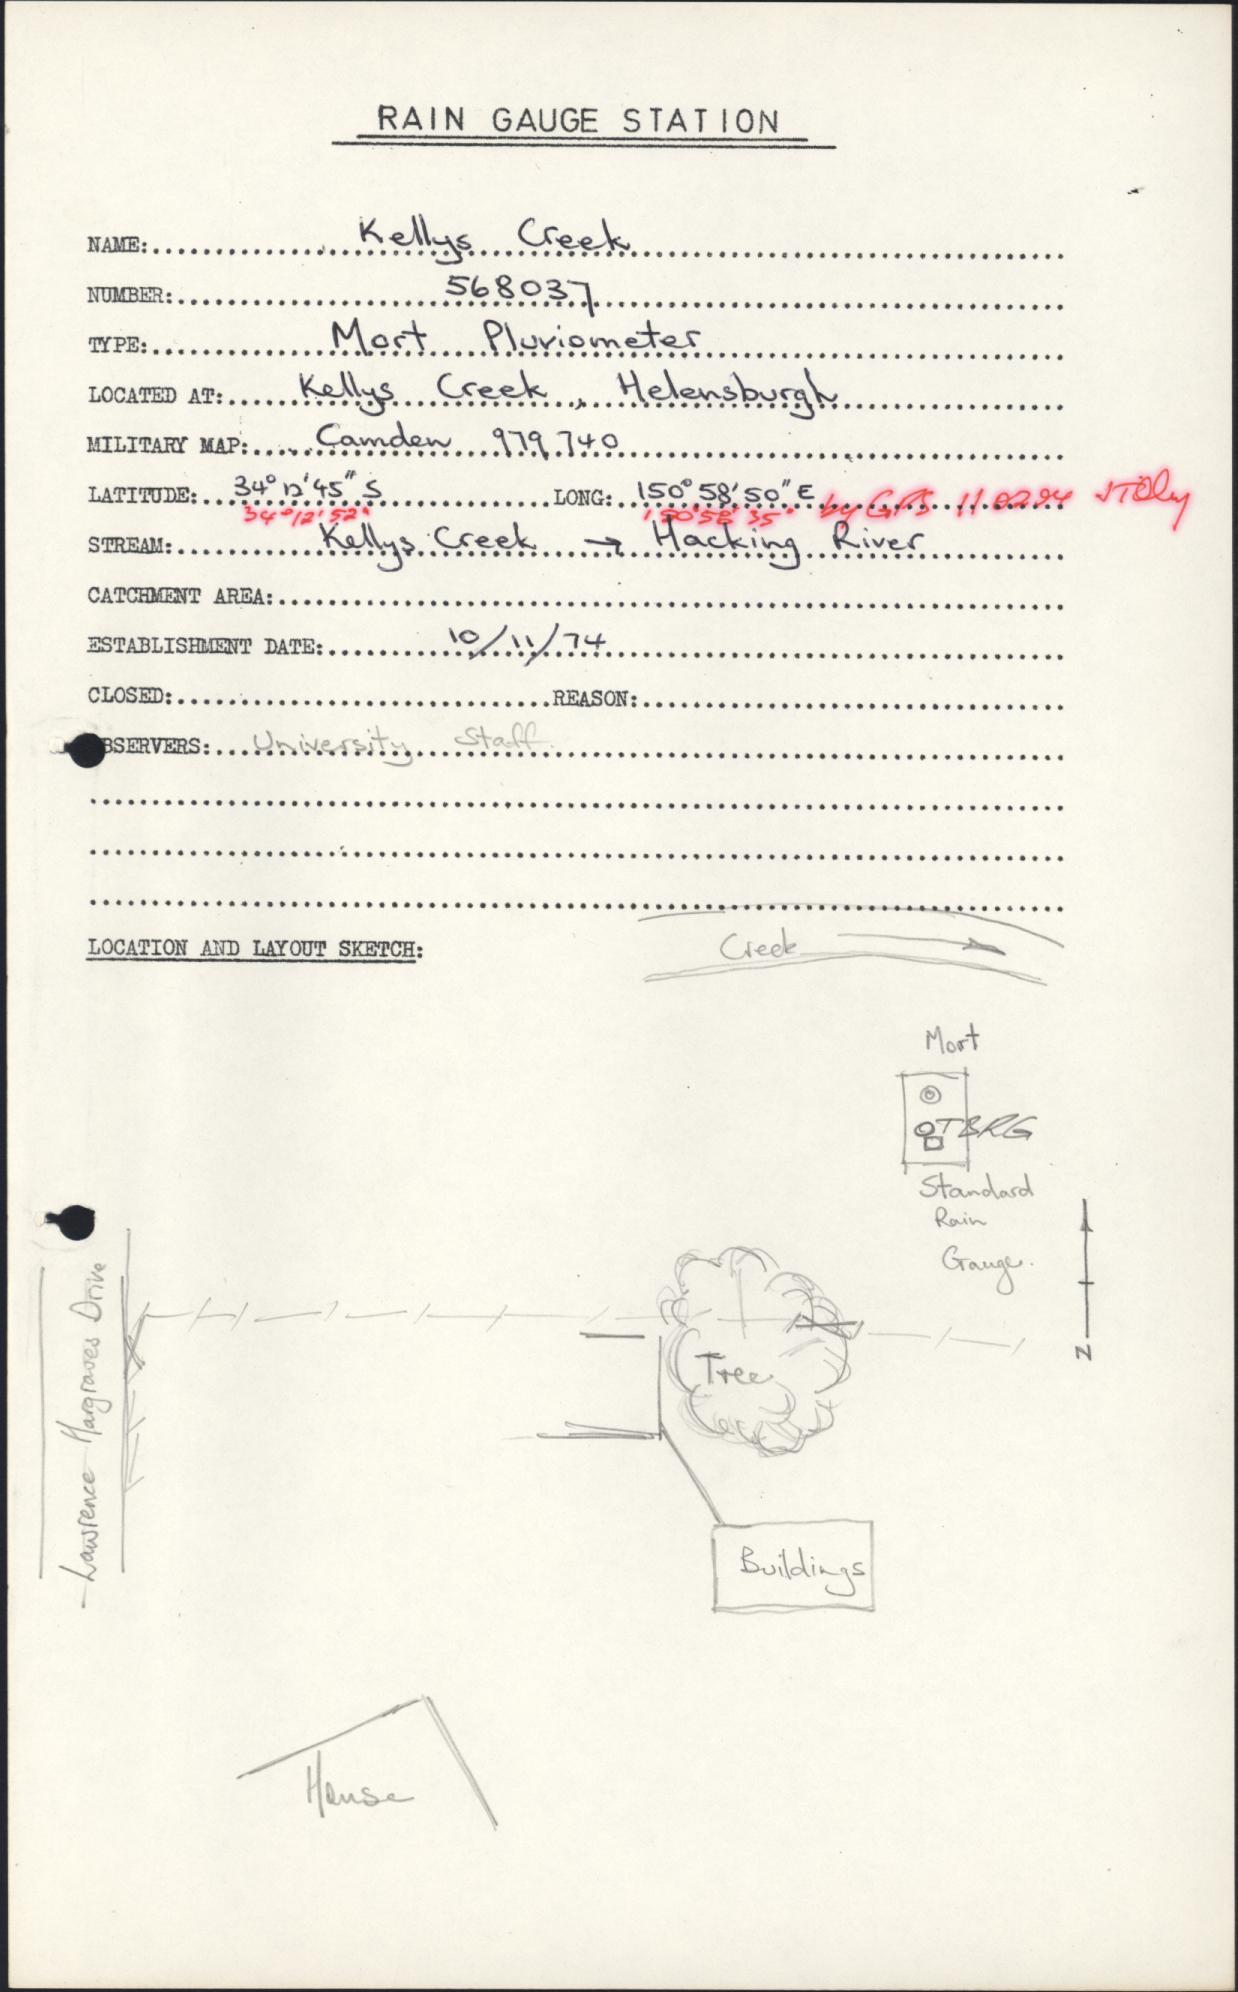 RAIN GAUGE STATION
NAME: Kellys Creek
NUMBER: 568037
TYPE: Mort Pluviometer
LOCATED AT: Kellys Creek, Helensburgh
MILITARY MAP: Camden 979740
LATITUDE: 34° 12' 45" S LONG: 150° 58' 50" E
34° 12' 52" 150° 58' 35" by GPS 11.02.94
STREAM: Kellys Creek → Hacking River
CATCHMENT AREA:
ESTABLISHMENT DATE: 10/11/74
CLOSED: REASON:
OBSERVERS: University Staff
LOCATION AND LAYOUT SKETCH:
Creek
Mort
TBRG
Standard
Rain
Gauge.
N
Lawrence Hargraves Drive
Tree
Buildings
House